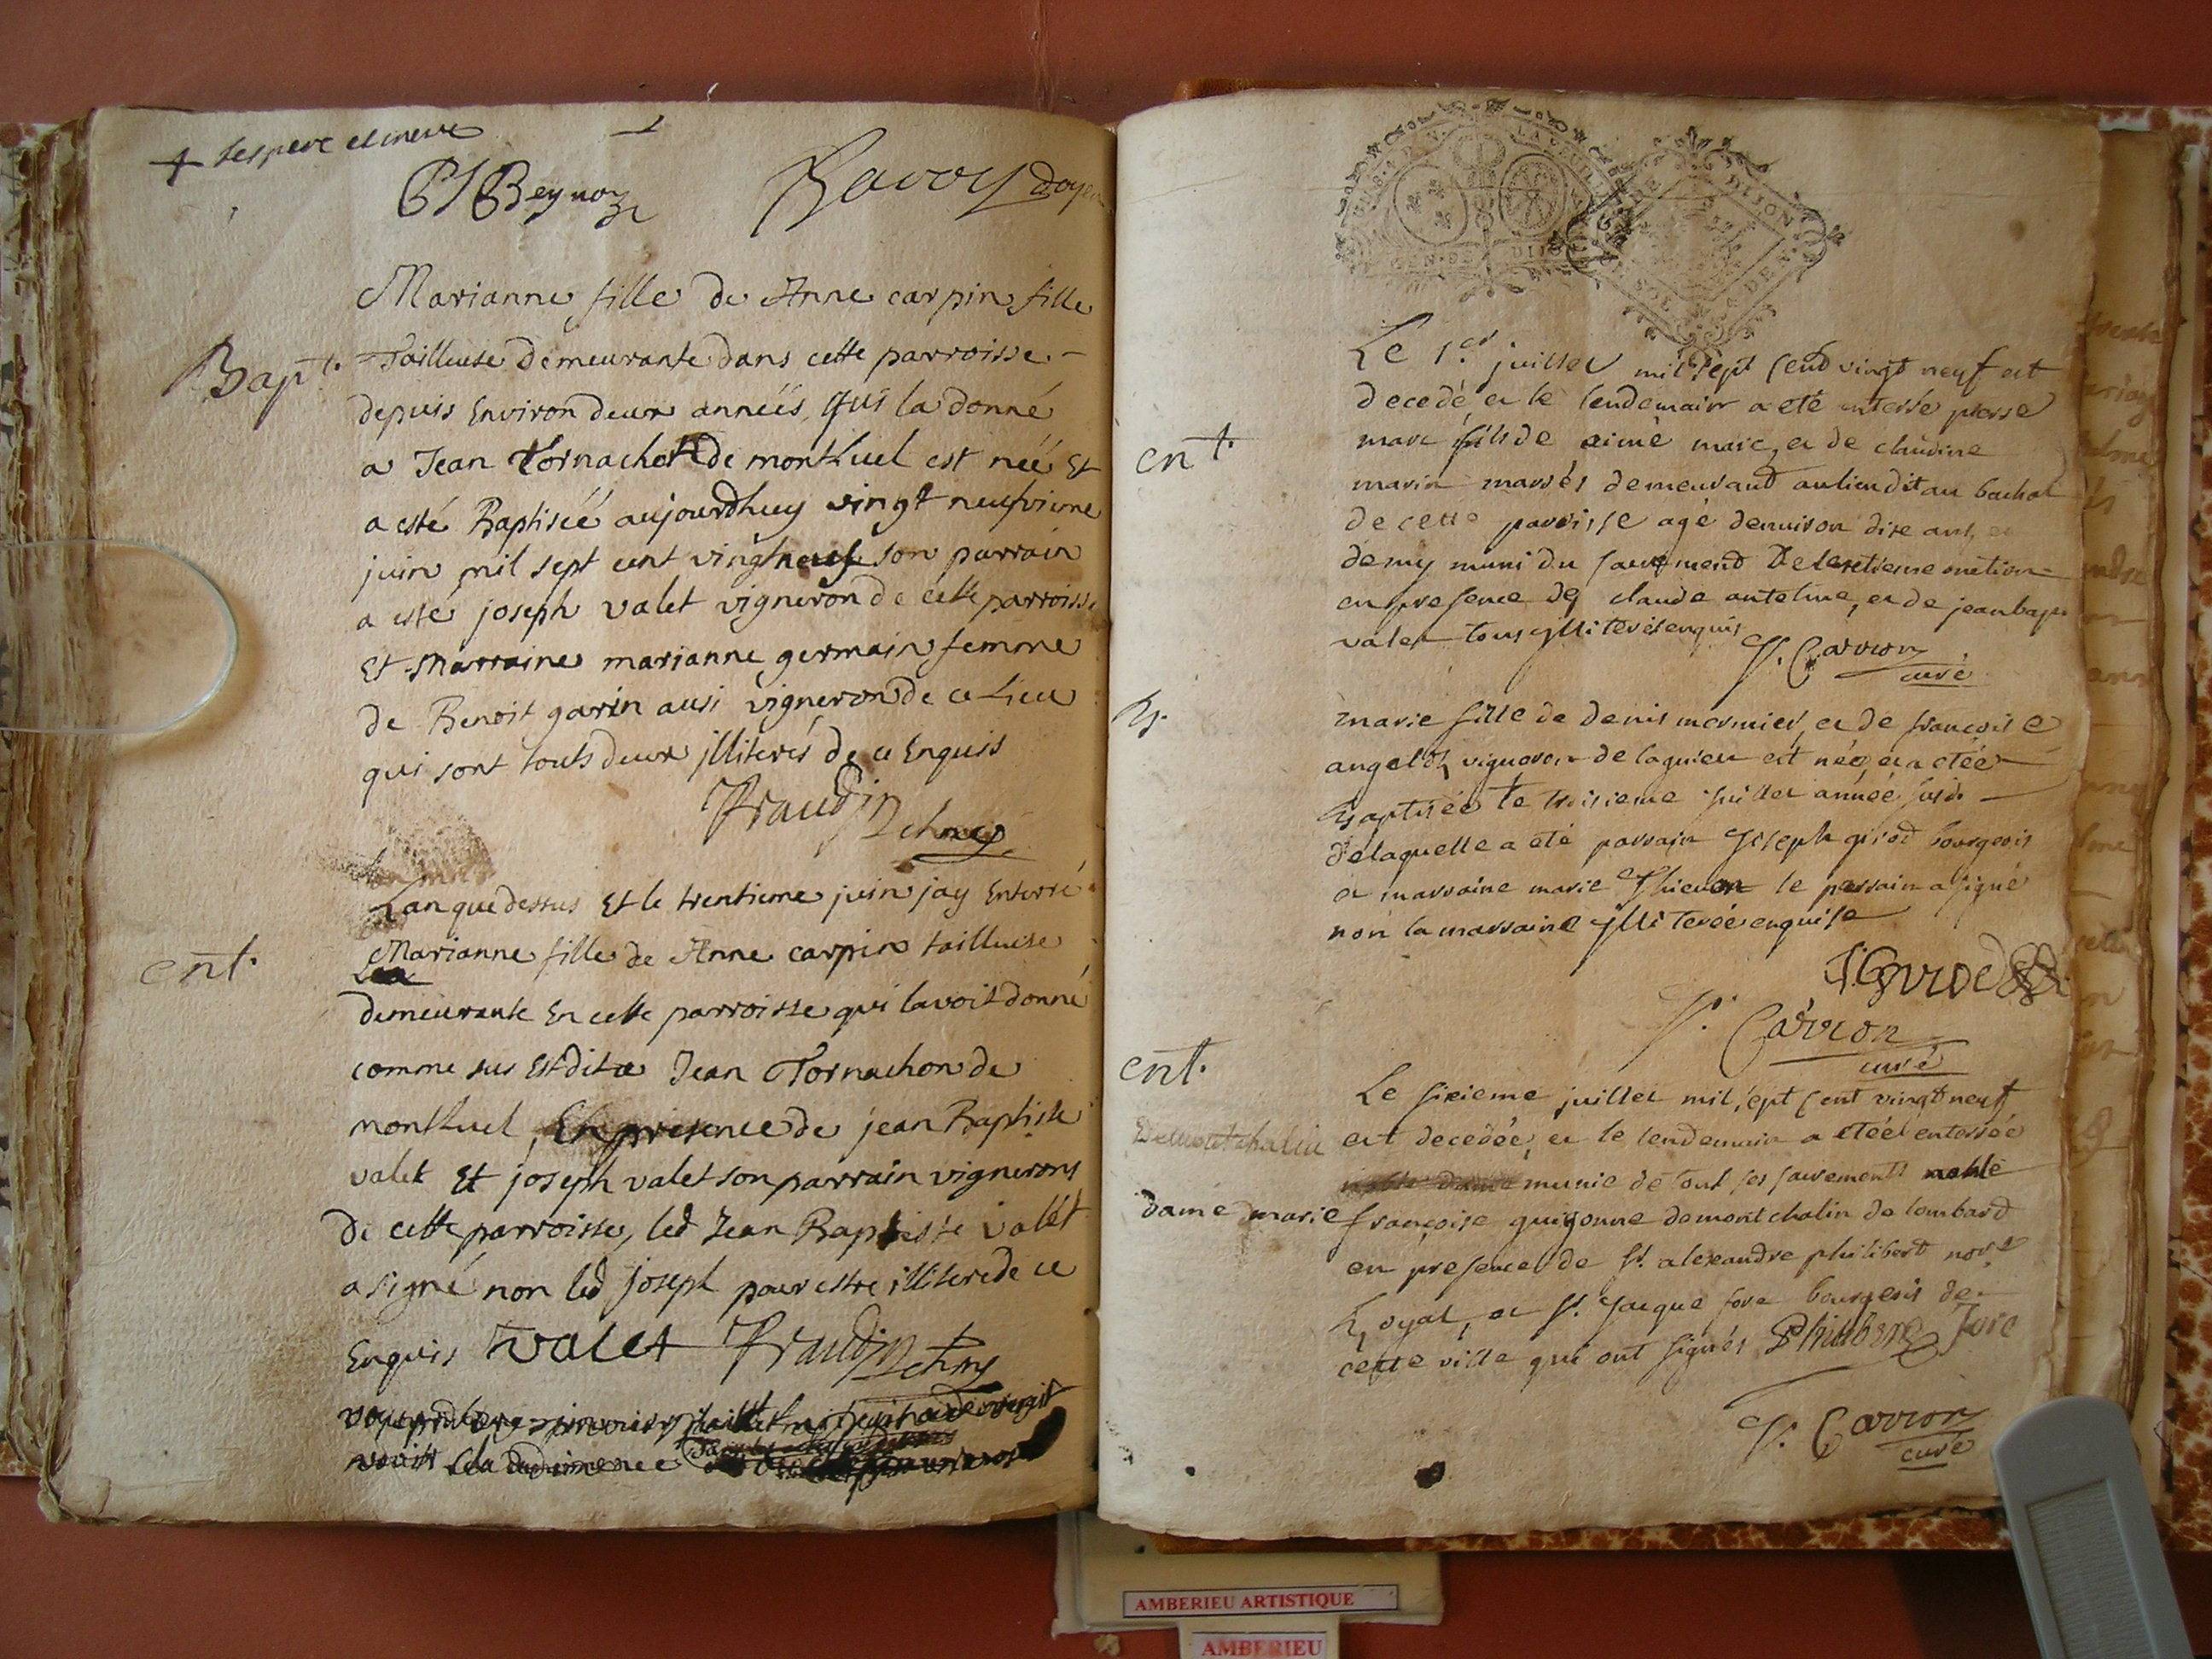 + ses pere et mere
Beynoz Savoy doyen
Marianne fille de Anne carpin fille
Bapt. Tailleuse demeurante dans cette parroisse
depuis Environ deux années, qui la donné
a Jean Tornachon de montluel est néé Et
a esté Baptiséé aujourdhuy vingt neufvieme
juin mil sept cent vingt neuf son parrain
a esté joseph valet vigneron de cette parroisse
Et Marraine marianne germain femme
de Benoit garin ausi vigneron de ce Lieu
qui sont touts deux jlliterés de ce Enquis
Lan que dessus Et le trentieme juin jay Enterré
ent. Marianne fille de Anne carpin tailleuse
demeurante En cette parroisse qui lavoit donné
comme sus Est dit a Jean Tornachon de
montluel, En presence de jean Baptiste
valet Et joseph valet son parrain vignerons
de cette parroisse, led Jean Baptiste valet
a signé non led joseph pour estre illiteré de ce
Enquis valet
DIJON
Le 1er juillet mil sept cend vingt neuf est
decedé, et le lendemain a eté enterré pierre
ent. marc fils de aimé marc, et de claudine
demeurand au lieu dit au bachat
de cette parroisse agé denviron dixe ans, et
demy muni du sacrement De lextreme onction
en presence de claude antelme, et de jean bapt
valet tous jlliterés enquis J. Carron
curé
B. marie fille de denis mermier, et de françoise
vigneron de lagnieu est née, et a etée
Baptisée le troisieme juillet année susd.
de laquelle a eté parrain joseph girod bourgeois
et marraine marie Thievon le parrain a signé
non la marraine jlliterée enquise
J. Carron
curé
ent. Le sixieme juillet mil sept cent vingt neuf
Demontchalin est decedée, et le lendemain a etée enterrée
munie de tout ses sacrements noble
dame marie françoise guigonne demontchalin de lombard
en presence de Sr. alexandre philibert notre
Royal, et Sr. jacque fore bourgeois de
cette ville qui ont signés Philibert Fore
J. Carron
curé
AMBERIEU ARTISTIQUE
AMBERIEU